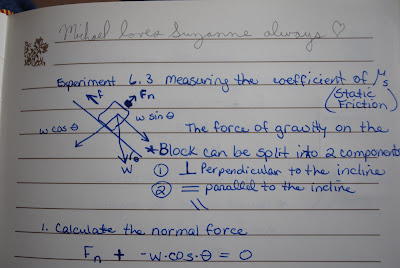 Michael loves Suzanne always ♡
Experiment 6.3 Measuring the coefficient of μs
(Static
Friction)
f
Fn
w cos θ
w sin θ
θ
W
The force of gravity on the
*Block can be split into 2 components
① ⊥ Perpendicular to the incline
② = parallel to the incline
\\
1. Calculate the normal force
Fn + -w·cos·θ = 0